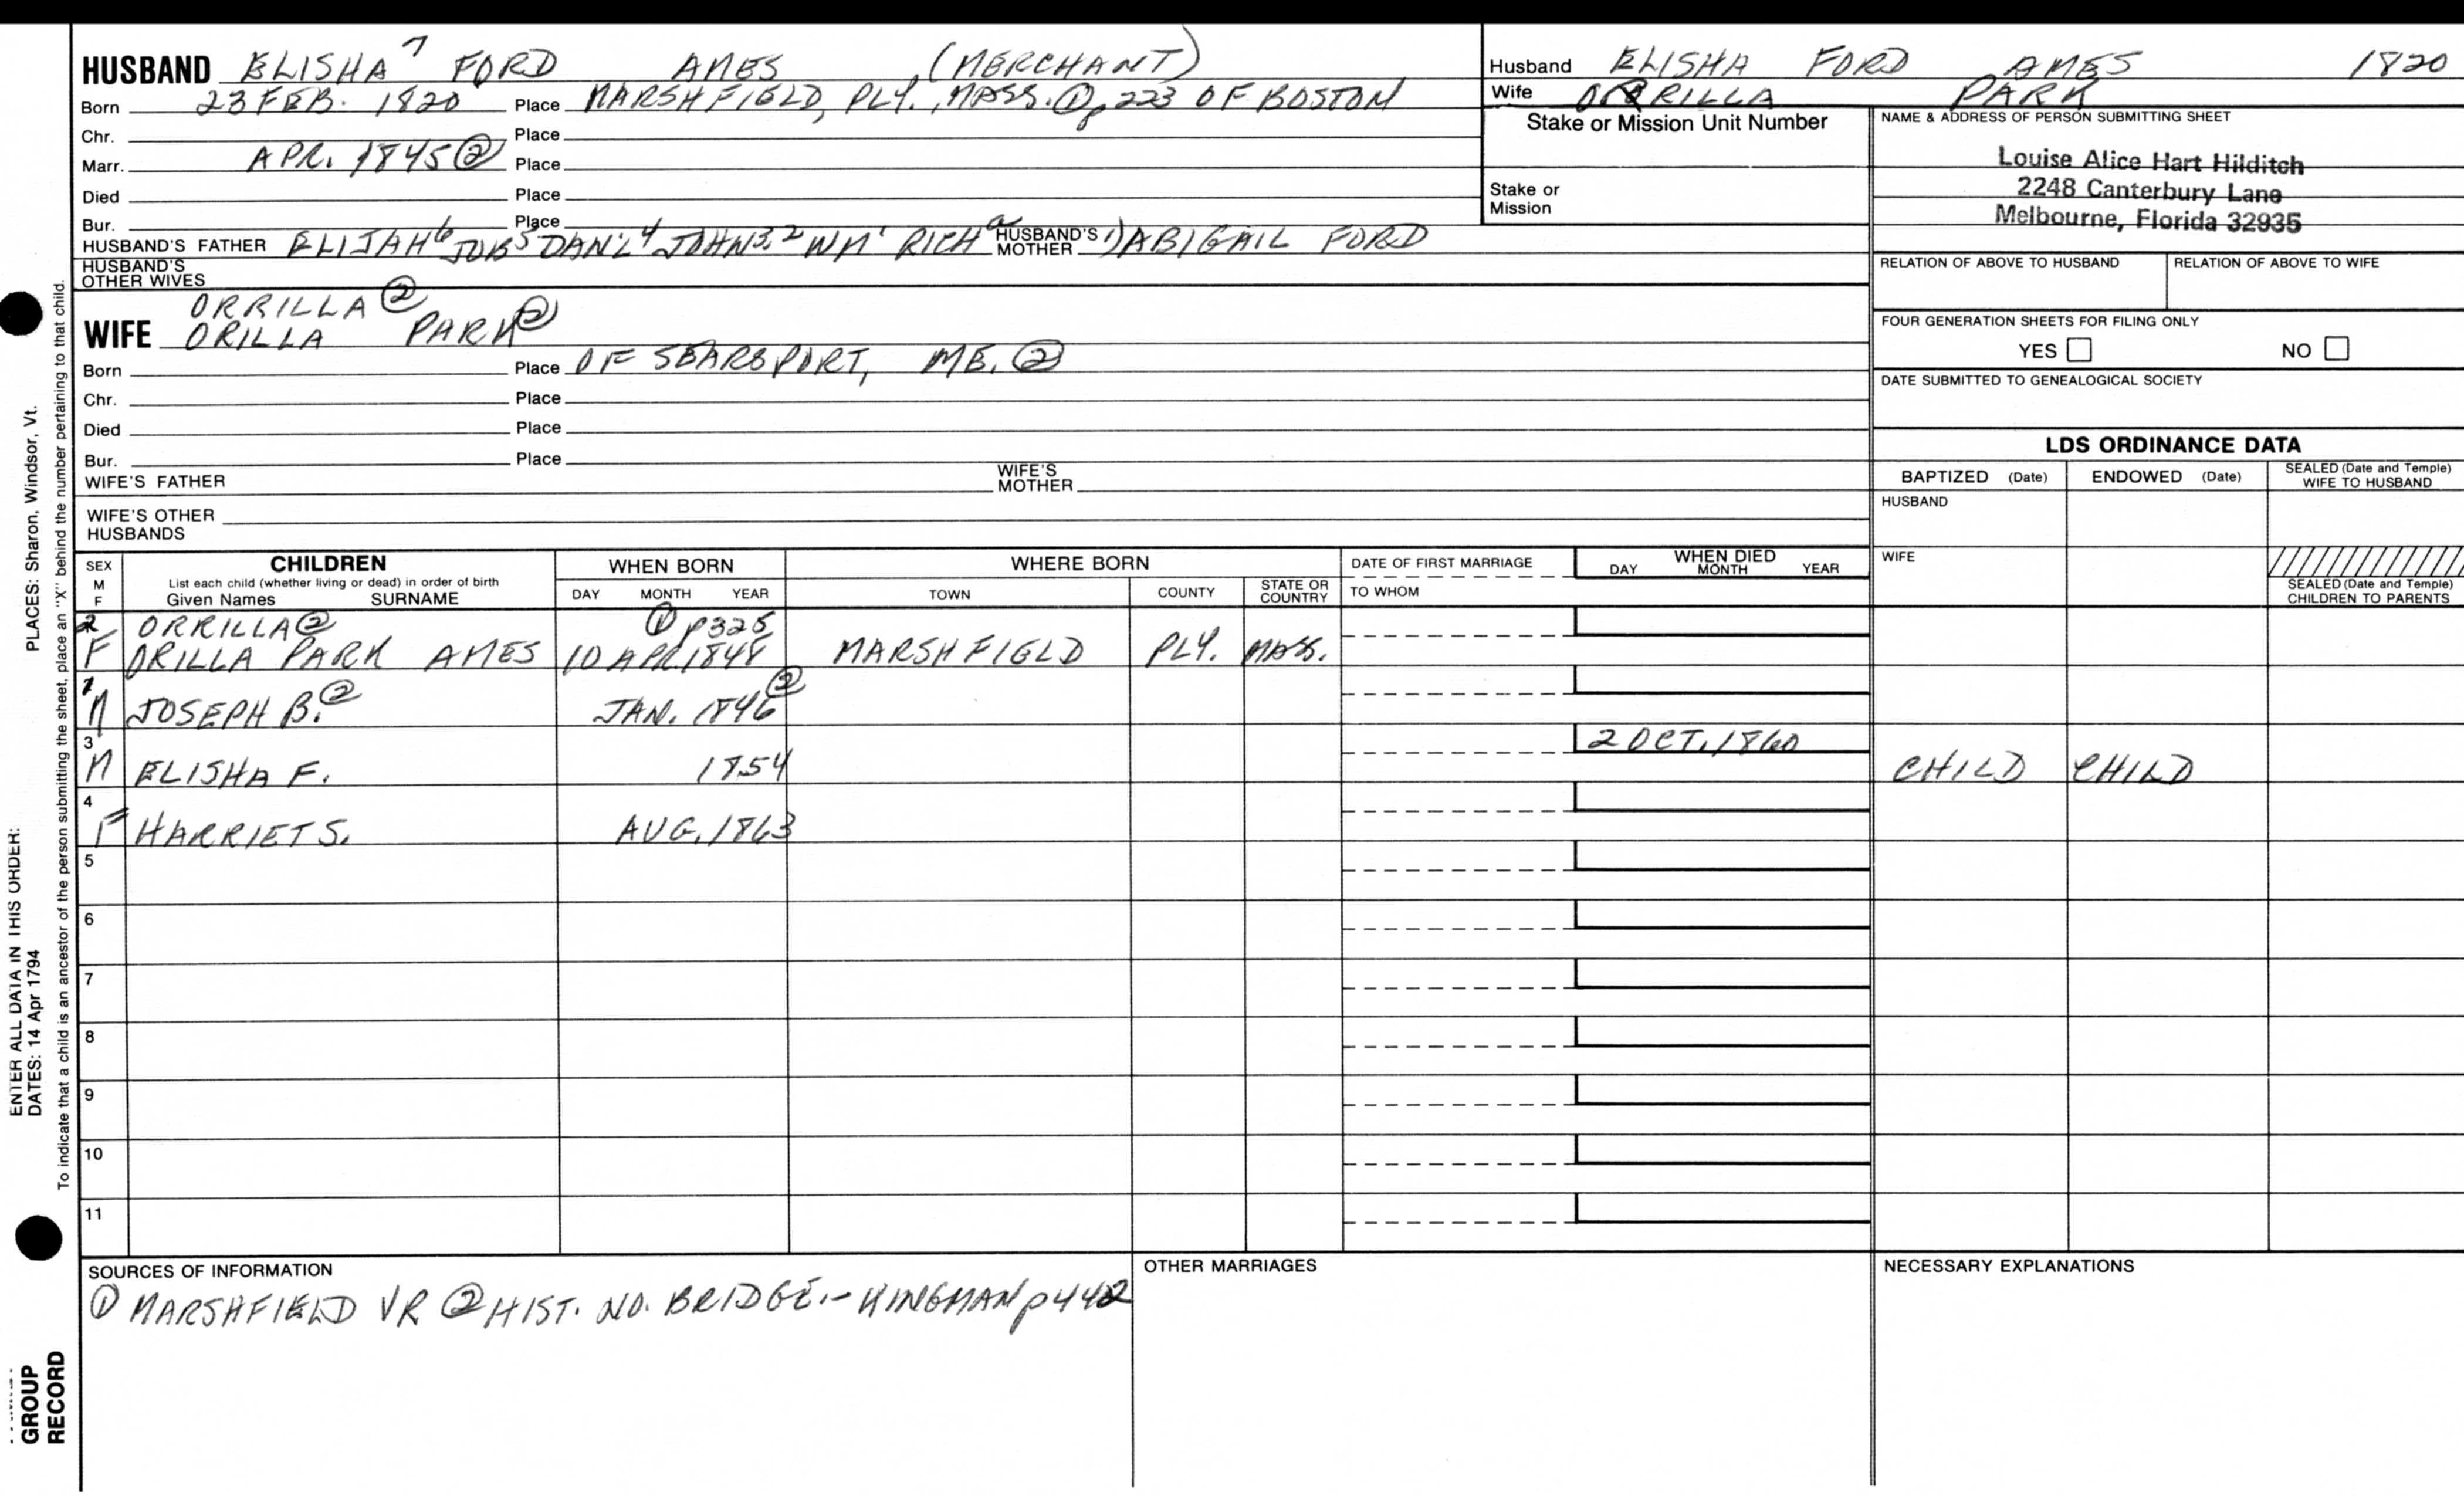 HUSBAND ELISHA⁷ FORD AMES (MERCHANT)
Born 23 FEB. 1820 Place MARSHFIELD, PLY., MASS. ① p 223 OF BOSTON
Chr. Place
Marr. APR. 1845 ② Place
Died Place
Bur. Place
HUSBAND'S FATHER ELIJAH⁶ JOB⁵ DAN'L⁴ JOHN³,² WM¹ RICHᵃ HUSBAND'S MOTHER 1) ABIGAIL FORD
HUSBAND'S OTHER WIVES
ORRILLA ②
WIFE ORILLA PARK ②
Born Place OF SEARSPORT, ME. ②
Chr. Place
Died Place
Bur. Place
WIFE'S FATHER WIFE'S MOTHER
WIFE'S OTHER HUSBANDS
Husband ELISHA FORD AMES 1820
Wife ORRILLA PARK
Stake or Mission Unit Number
Stake or Mission
NAME & ADDRESS OF PERSON SUBMITTING SHEET
Louise Alice Hart Hilditch
2248 Canterbury Lane
Melbourne, Florida 32935
RELATION OF ABOVE TO HUSBAND RELATION OF ABOVE TO WIFE
FOUR GENERATION SHEETS FOR FILING ONLY
YES NO
DATE SUBMITTED TO GENEALOGICAL SOCIETY
LDS ORDINANCE DATA
BAPTIZED (Date) ENDOWED (Date) SEALED (Date and Temple) WIFE TO HUSBAND
HUSBAND
WIFE
SEALED (Date and Temple) CHILDREN TO PARENTS
SEX M F CHILDREN WHEN BORN WHERE BORN DATE OF FIRST MARRIAGE WHEN DIED
List each child (whether living or dead) in order of birth
Given Names SURNAME DAY MONTH YEAR TOWN COUNTY STATE OR COUNTRY TO WHOM DAY MONTH YEAR
2 ORRILLA ② ① p325
F ORILLA PARK AMES 10 APR 1848 MARSHFIELD PLY. MASS.
1 ②
M JOSEPH B. ② JAN. 1846
3 2 OCT. 1860
M ELISHA F. 1854 CHILD CHILD
4
F HARRIET S. AUG. 1863
5
6
7
8
9
10
11
SOURCES OF INFORMATION
① MARSHFIELD VR ② HIST. NO. BRIDGE.- KINGMAN p442
OTHER MARRIAGES
NECESSARY EXPLANATIONS
PLACES: Sharon, Windsor, Vt.
To indicate that a child is an ancestor of the person submitting the sheet, place an "X" behind the number pertaining to that child.
ENTER ALL DATA IN THIS ORDER:
DATES: 14 Apr 1794
GROUP
RECORD